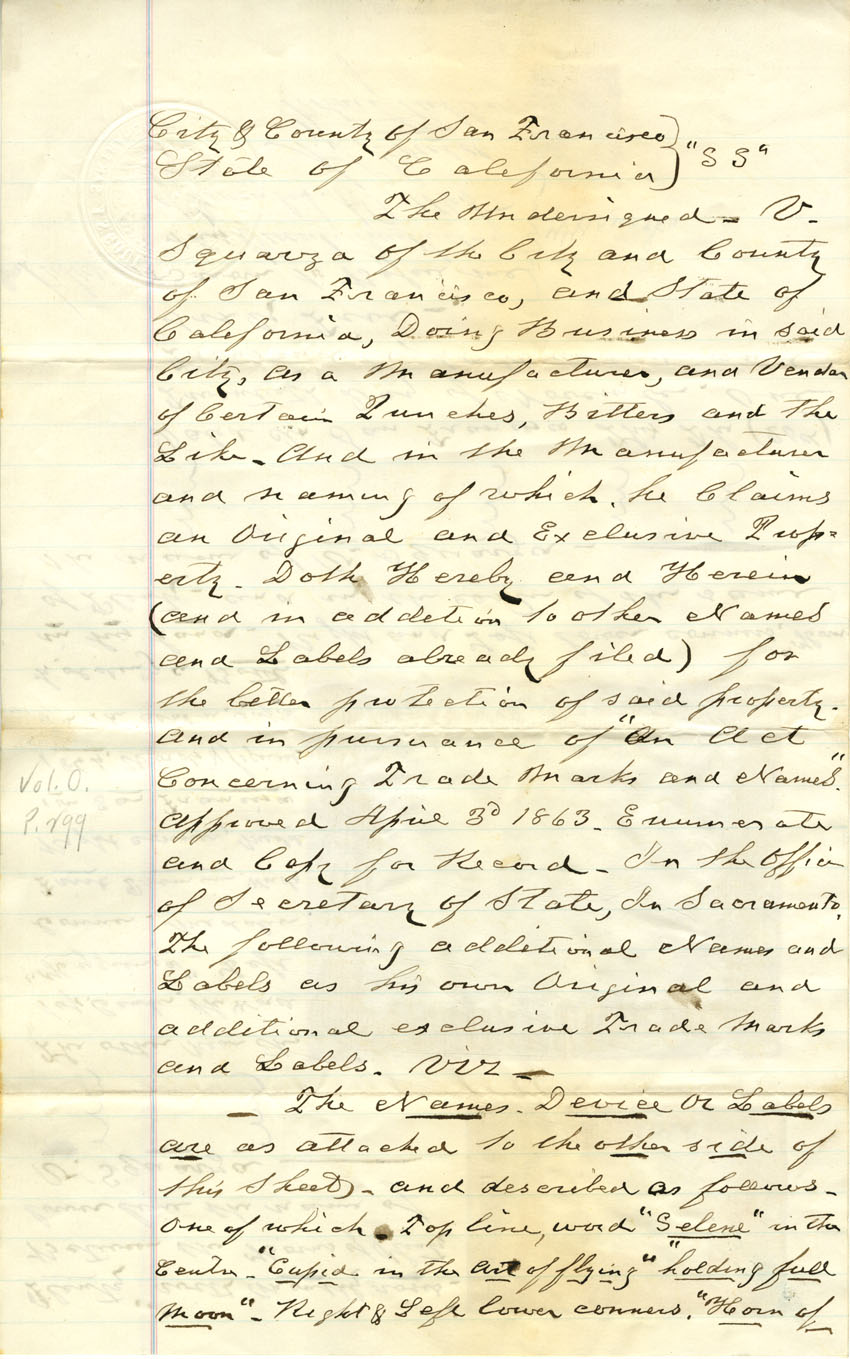 City & County of San Francisco
State of California } "SS"
The Undersigned - V.
Squarza of the City and County
of San Francisco, and State of
California, Doing Business in said
City, as a Manufacturer, and Vendor
of Certain Punches, Bitters and the
Like - And in the Manufacturer
and naming of which, he Claims
an Original and Exclusive Prop=
erty. Doth Hereby and Herein
(and in addition to other Names
and Labels already filed) for
the better protection of said property.
and in pursuance of "An Act
Concerning Trade Marks and Names".
approved April 3d 1863 - Enumerate
and Copy for Record - In the Office
of Secretary of State, In Sacramento,
The following additional Names and
Labels as his own Original and
additional exclusive Trade Marks
and Labels. Viz -
- The Names. Device Or Labels
are as attached to the other side of
this Sheet) - and described as follows -
One of which - Top line, word "Selene" in the
Centre - "Cupid in the art of flying" "holding full
moon" - Right & Left lower conners. "Horn of
Vol. O.
P. 299